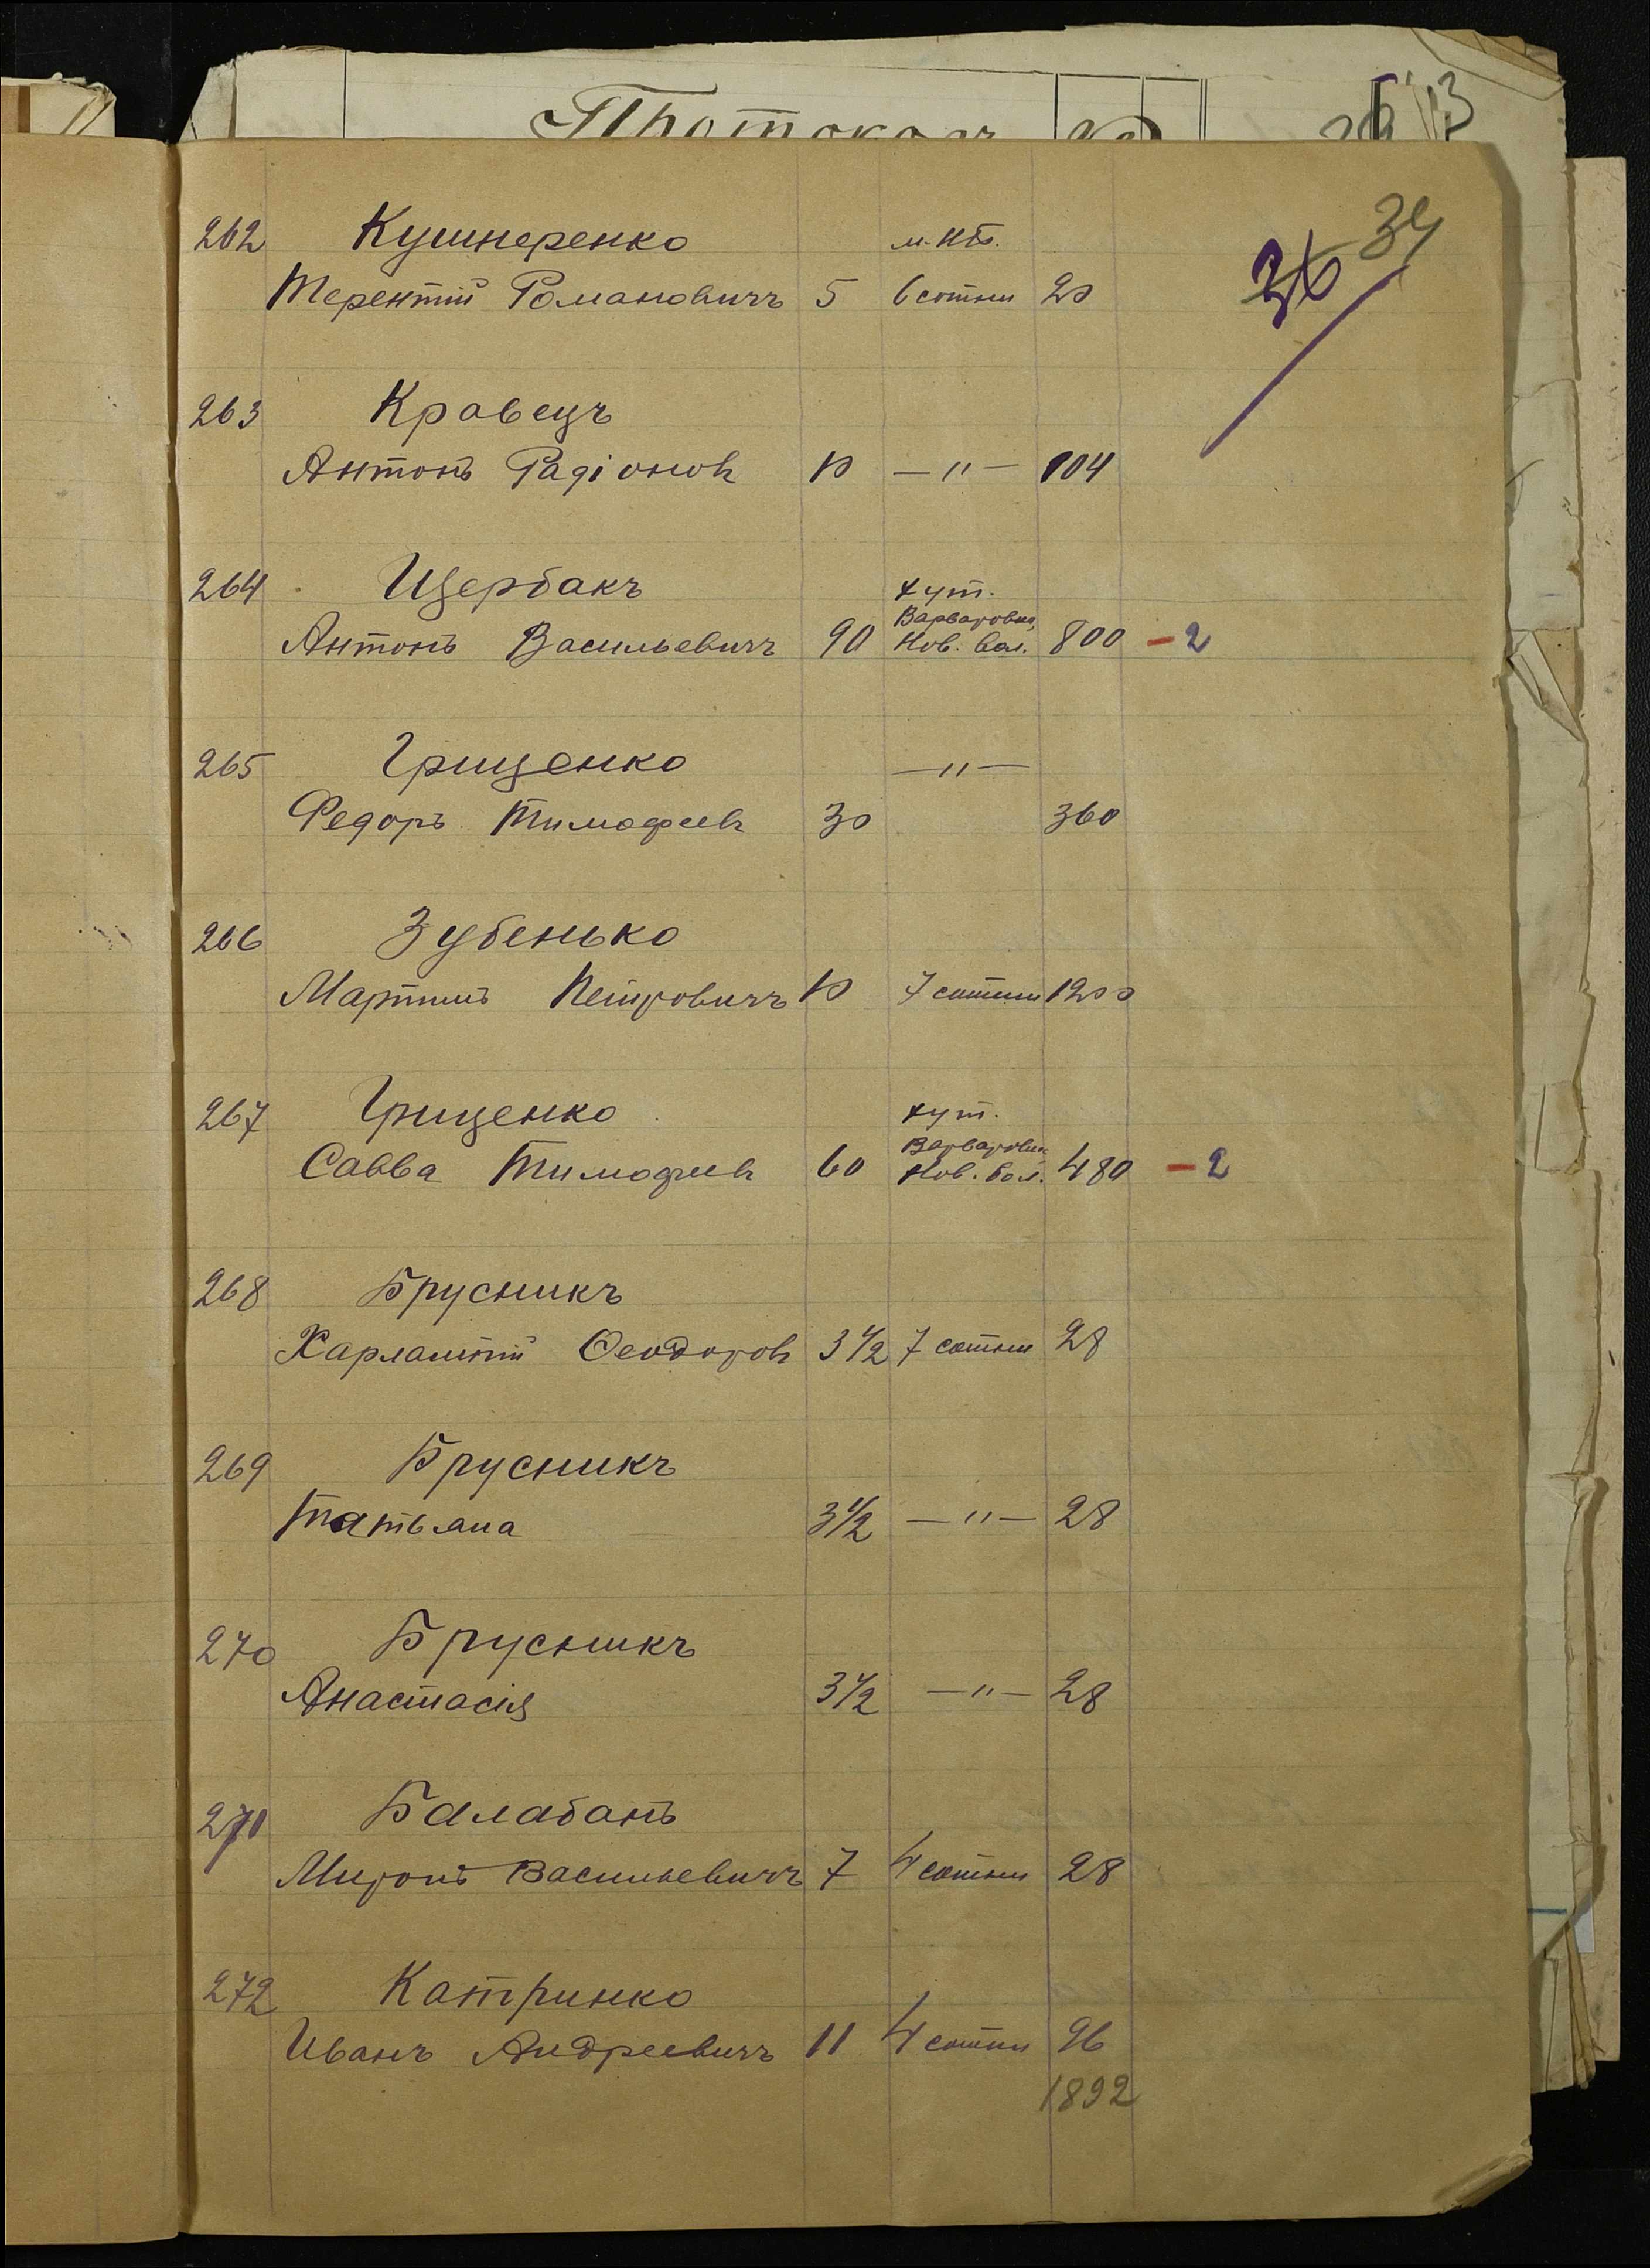 34
36
262 Кушнеренко м. Нб.
Терентій Романовичъ 5 6 сотни 20
263 Кравецъ
Антонъ Радіоновъ 10 —"— 104
264 Щербакъ хут.
Варваровка,
Антонъ Васильевичъ 90 Нов. вол. 800 – 2
265 Грищенко —"—
Федоръ Тимофеевъ 30 360
266 Зубенько
Мартинъ Петровичъ 10 7 сотни 1200
267 Грищенко хут.
Варваровка
Савва Тимофеевъ 60 Нов. вол. 480 – 2
268 Брусникъ
Харлампій Феодоровъ 3 1/2 7 сотни 28
269 Брусникъ
Татьяна 3 1/2 —"— 28
270 Брусникъ
Анастасія 3 1/2 —"— 28
271 Балабанъ
Миронъ Васильевичъ 7 4 сотни 28
272 Катринко
Иванъ Андреевичъ 11 4 сотни 96
1892